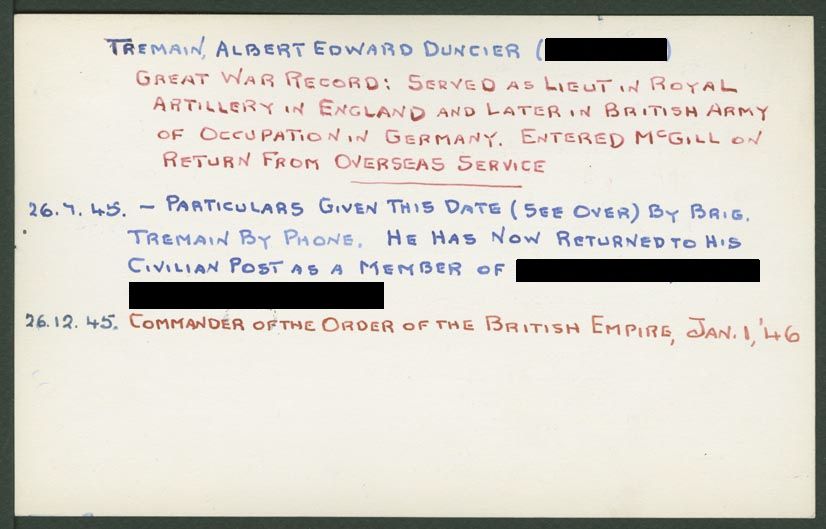 TREMAIN, ALBERT EDWARD DUNCIER (
GREAT WAR RECORD: SERVED AS LIEUT IN ROYAL
ARTILLERY IN ENGLAND AND LATER IN BRITISH ARMY
OF OCCUPATION IN GERMANY. ENTERED McGILL ON
RETURN FROM OVERSEAS SERVICE
26.7.45. - PARTICULARS GIVEN THIS DATE (SEE OVER) BY BRIG.
TREMAIN BY PHONE. HE HAS NOW RETURNED TO HIS
CIVILIAN POST AS A MEMBER OF
26.12.45. COMMANDER OF THE ORDER OF THE BRITISH EMPIRE, JAN. 1, '46